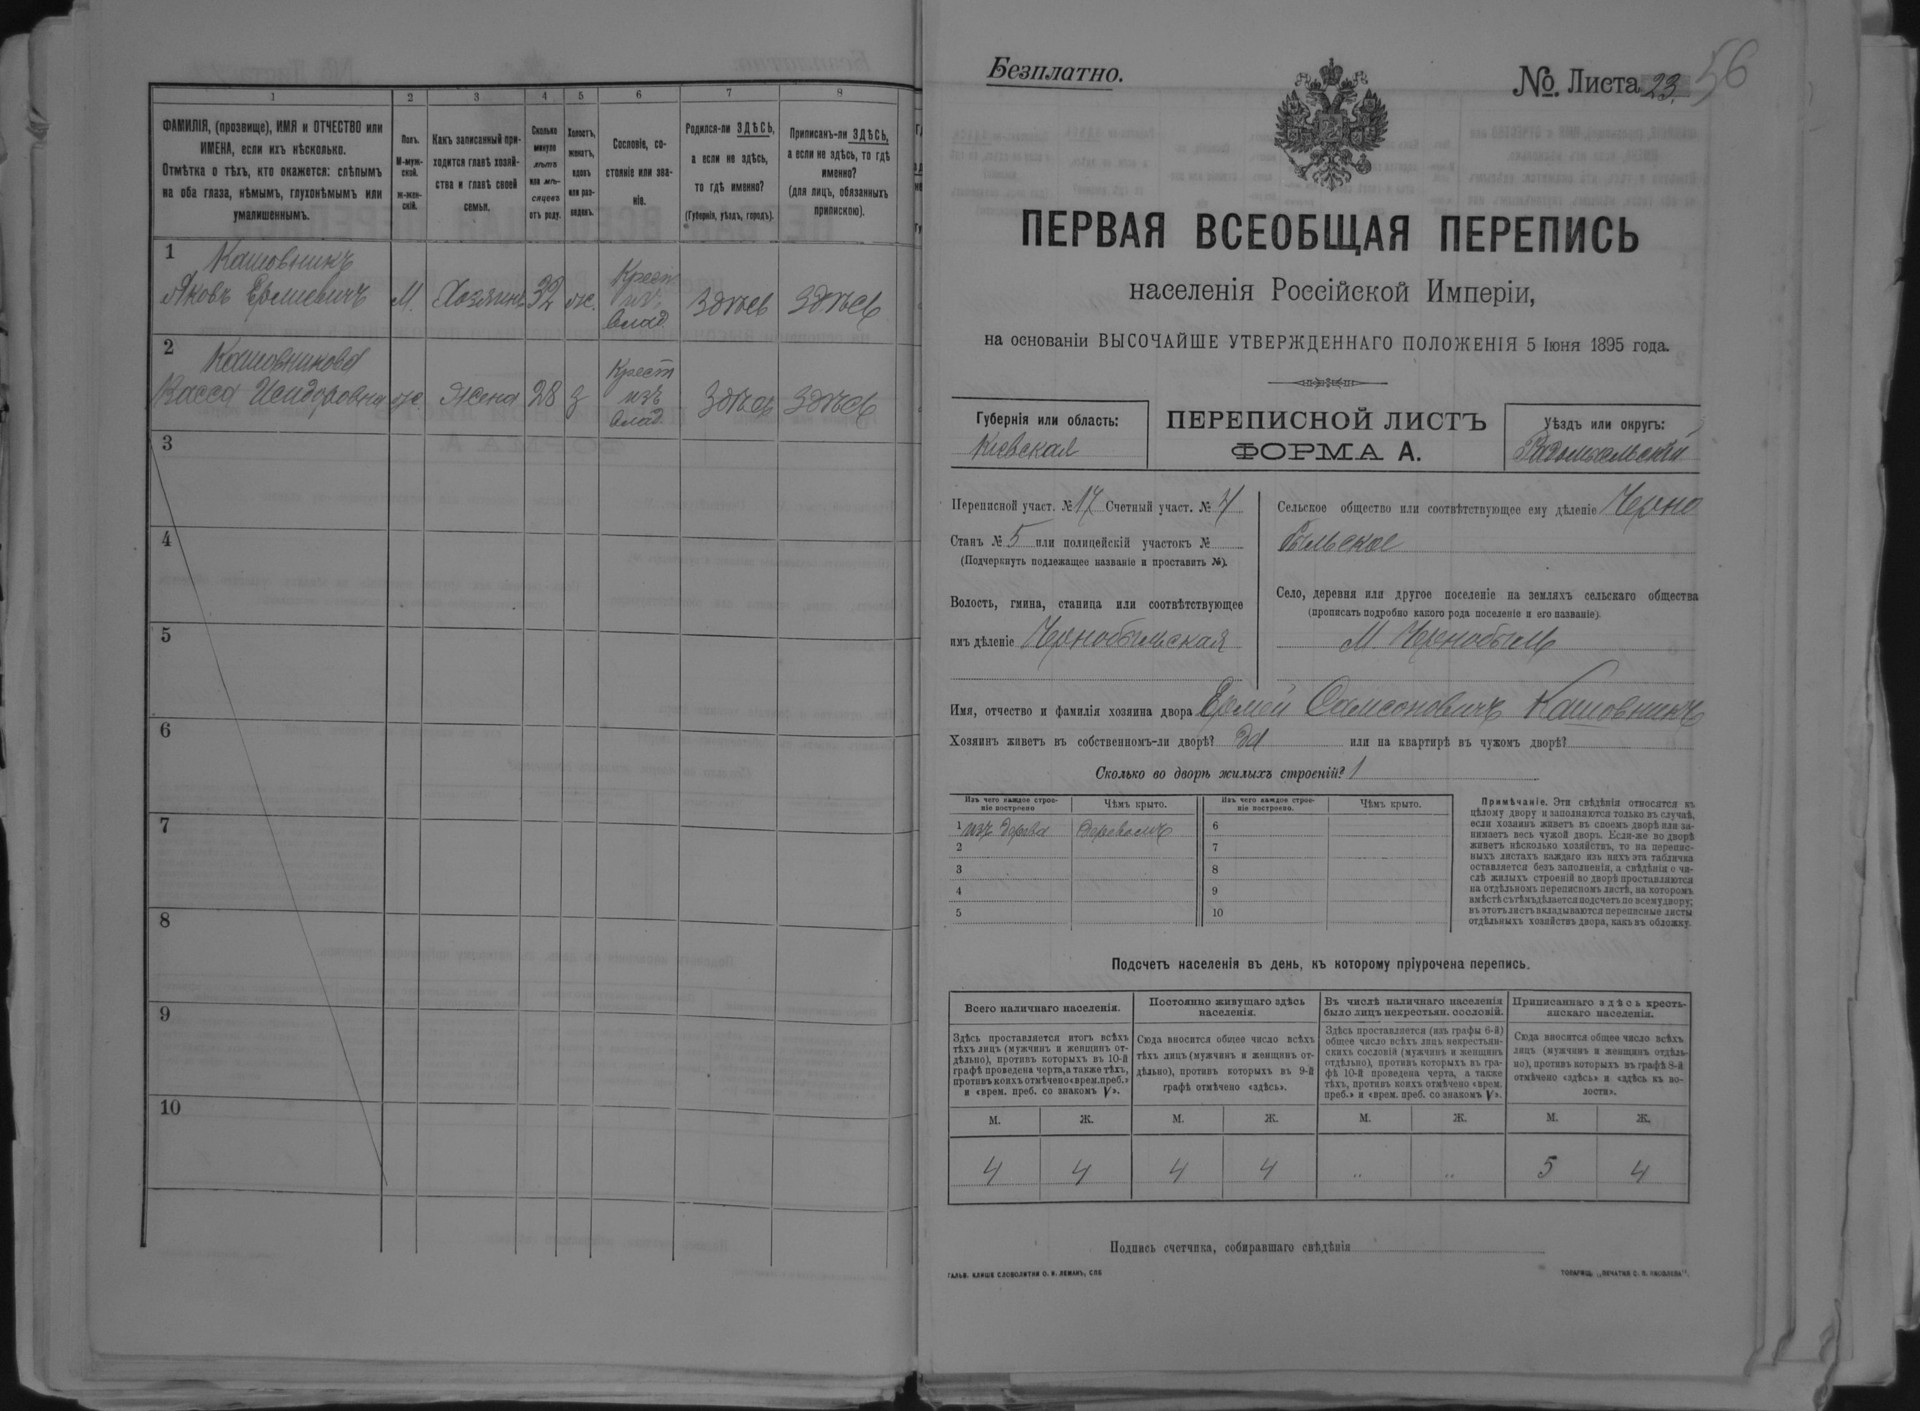 1 2 3 4 5 6 7 8
ФАМИЛІЯ, (прозвище), ИМЯ и ОТЧЕСТВО или ИМЕНА, если ихъ нѣсколько.
Отмѣтка о тѣхъ, кто окажется: слѣпымъ на оба глаза, нѣмымъ, глухонѣмымъ или умалишеннымъ.
Полъ. М-мужской. ж-женскій.
Какъ записанный приходится главѣ хозяйства и главѣ своей семьи.
Сколько минуло лѣтъ или мѣсяцевъ отъ роду.
Холостъ, женатъ, вдовъ или разведенъ.
Сословіе, состояніе или званіе.
Родился-ли ЗДѢСЬ, а если не здѣсь, то гдѣ именно?
(Губернія, уѣздъ, городъ).
Приписанъ-ли ЗДѢСЬ, а если не здѣсь, то гдѣ именно?
(для лицъ, обязанныхъ припискою).
1 Кашовникъ Яковъ Ермиевичъ М. Хозяинъ 32 ж. Крест. изъ влад. Здѣсь Здѣсь
2 Кашовникова Васса Исидоровна ж. Жена 28 з Крест изъ влад. Здѣсь Здѣсь
3
4
5
6
7
8
9
10
Безплатно.
№ Листа 23. 56
ПЕРВАЯ ВСЕОБЩАЯ ПЕРЕПИСЬ
населенія Россійской Имперіи,
на основаніи ВЫСОЧАЙШЕ УТВЕРЖДЕННАГО ПОЛОЖЕНІЯ 5 Іюня 1895 года.
Губернія или область:
Кіевская
ПЕРЕПИСНОЙ ЛИСТЪ
ФОРМА А.
Уѣздъ или округъ:
Радомысльскій
Переписной участ. № 17 Счетный участ. № 4
Станъ № 5 или полицейскій участокъ №
(Подчеркнуть подлежащее названіе и проставить №).
Волость, гмина, станица или соотвѣтствующее
имъ дѣленіе Чернобыльская
Сельское общество или соотвѣтствующее ему дѣленіе Черно
быльское
Село, деревня или другое поселеніе на земляхъ сельскаго общества
(прописать подробно какого рода поселеніе и его названіе)
М. Чернобыль
Имя, отчество и фамилія хозяина двора Ермей Самсоновичъ Кашовникъ
Хозяинъ живетъ въ собственномъ-ли дворѣ? Да или на квартирѣ въ чужомъ дворѣ?
Сколько во дворѣ жилыхъ строеній? 1
Изъ чего каждое строеніе построено Чѣмъ крыто. Изъ чего каждое строеніе построено. Чѣмъ крыто.
1 изъ дерева Деревомъ 6
2 7
3 8
4 9
5 10
Примѣчаніе. Эти свѣдѣнія относятся къ
цѣлому двору и заполняются только въ случаѣ,
если хозяинъ живетъ въ своемъ дворѣ или за-
нимаетъ весь чужой дворъ. Если-же во дворѣ
живетъ нѣсколько хозяйствъ, то на перепис-
ныхъ листахъ каждаго изъ нихъ эта табличка
оставляется безъ заполненія, а свѣдѣнія о чи-
слѣ жилыхъ строеній во дворѣ проставляются
на отдѣльномъ переписномъ листѣ, на которомъ
вмѣстѣ съ тѣмъ дѣлается подсчетъ по всему двору;
въ этотъ листъ вкладываются переписные листы
отдѣльныхъ хозяйствъ двора, какъ въ обложку.
Подсчетъ населенія въ день, къ которому пріурочена перепись.
Всего наличнаго населенія.
Здѣсь проставляется итогъ всѣхъ
тѣхъ лицъ (мужчинъ и женщинъ от-
дѣльно), противъ которыхъ въ 10-й
графѣ проведена черта, а также тѣхъ,
противъ коихъ отмѣчено «врем. преб.»
и «врем. преб. со знакомъ V».
Постоянно живущаго здѣсь
населенія.
Сюда вносится общее число всѣхъ
тѣхъ лицъ (мужчинъ и женщинъ от-
дѣльно), противъ которыхъ въ 9-й
графѣ отмѣчено «здѣсь».
Въ числѣ наличнаго населенія
было лицъ некрестьян. сословій.
Здѣсь проставляется (изъ графы 6-й)
общее число всѣхъ лицъ некрестьян-
скихъ сословій (мужчинъ и женщинъ
отдѣльно), противъ которыхъ въ гра-
фѣ 10-й проведена черта, а также
тѣхъ, противъ коихъ отмѣчено «врем.
преб.» и «врем. преб. со знакомъ V».
Приписаннаго здѣсь кресть-
янскаго населенія.
Сюда вносится общее число всѣхъ
лицъ (мужчинъ и женщинъ отдѣль-
но), противъ которыхъ въ графѣ 8-й
отмѣчено «здѣсь» и «здѣсь къ во-
лости».
М. Ж. М. Ж. М. Ж. М. Ж.
4 4 4 4 .. .. 5 4
Подпись счетчика, собиравшаго свѣдѣнія
ГАЛЬВ. КЛИШЕ СЛОВОЛИТНИ О. И. ЛЕМАНЪ, СПБ
ТОВАРИЩ. „ПЕЧАТНЯ С. П. ЯКОВЛЕВА“.